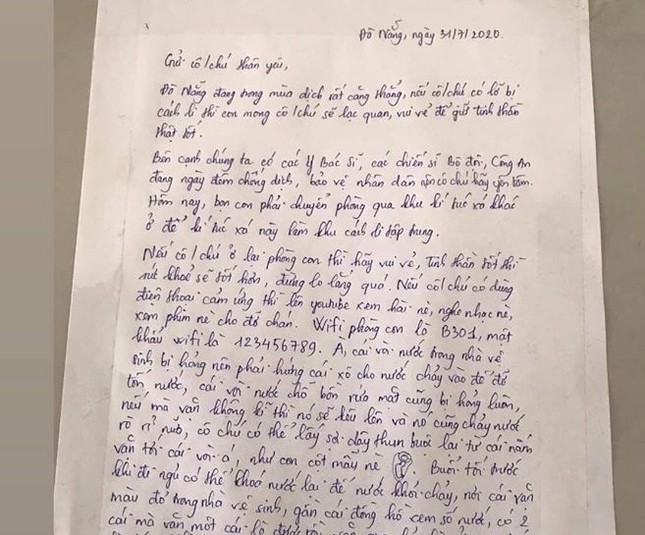 Đà Nẵng, ngày 31/7/2020.
Gửi cô/chú thân yêu,
Đà Nẵng đang trong mùa dịch rất căng thẳng, nếu cô/chú có lỡ bị
cách li thì con mong cô/chú sẽ lạc quan, vui vẻ để giữ tinh thần
thật tốt.
Bên cạnh chúng ta có các Y Bác Sĩ, các chiến sĩ Bộ đội, Công An
đang ngày đêm chống dịch, bảo vệ nhân dân nên cô chú hãy yên tâm.
Hôm nay, bọn con phải chuyển phòng qua khu kí túc xá khác
ở để kí túc xá này làm khu cách li tập trung.
Nếu cô/chú ở lại phòng con thì hãy vui vẻ, tinh thần tốt thì
sức khoẻ sẽ tốt hơn, đừng lo lắng quá. Nếu cô/chú có dùng
điện thoại cảm ứng thì lên youtube xem hài nè, nghe nhạc nè,
xem phim nè cho đỡ chán. Wifi phòng con là B301, mật
khẩu wifi là 123456789. À, cái vòi nước trong nhà vệ
sinh bị hỏng nên phải hứng cái xô cho nước chảy vào để đỡ
tốn nước, cái vòi nước chỗ bồn rửa mặt cũng bị hỏng luôn,
nếu mà vặn không kĩ thì nó sẽ kêu lên và nó cũng chảy nước
rò rỉ nữa, cô chú có thể lấy sợi dây thun buộc lại từ cái nắm
vặn tới cái vòi á, như con cột mẫu nè . Buổi tối trước
khi đi ngủ có thể khoá nước lại để nước khỏi chảy, nới cái vặn
màu đỏ trong nhà vệ sinh, gần cái đồng hồ xem số nước, có 2
cái mà vặn một cái là được rồi